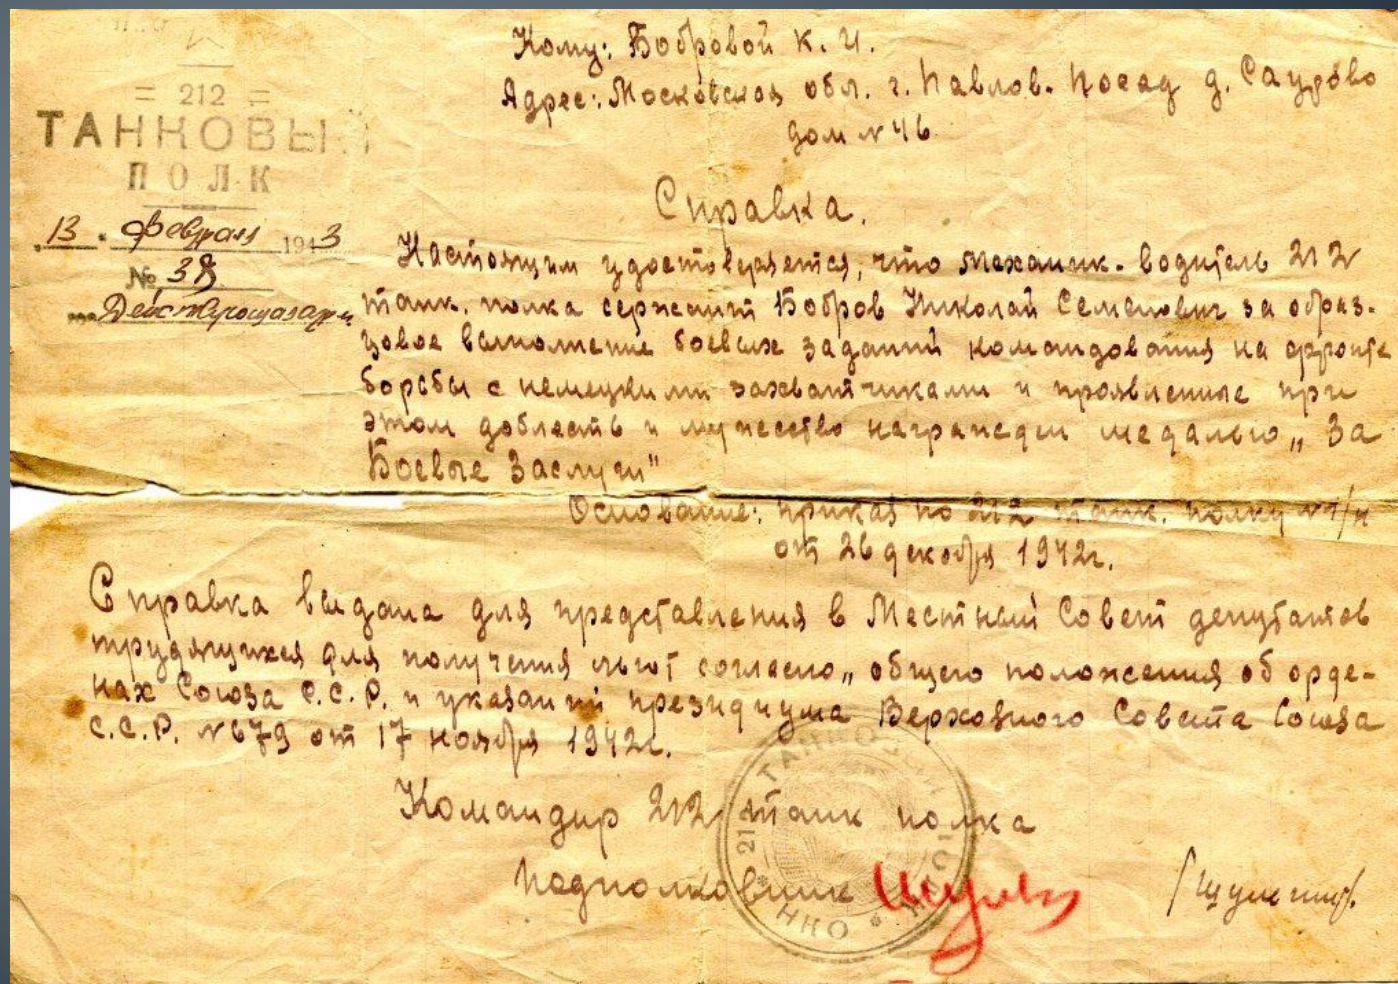 Кому: Бобровой К. И.
Адрес: Московская обл. г. Павлов. Посад д. Саурово
дом № 46
= 212 =
ТАНКОВЫЙ
ПОЛК
13 Февраля 1943
№ 38
Действующая арм
Справка.
Настоящим удостоверяется, что механик-водитель 212
танк. полка сержант Бобров Николай Семенович за образ-
цовое выполнение боевых заданий командования на фронте
борьбы с немецкими захватчиками и проявленные при
этом доблесть и мужество награжден медалью „За
Боевые Заслуги"
Основание: приказ по 212 танк. полку №1/н
от 26 декабря 1942г.
Справка выдана для представления в Местный Совет депутатов
трудящихся для получения льгот согласно „общего положения об орде-
нах Союза С.С.Р. и указаний президиума Верховного Совета Союза
С.С.Р. №679 от 17 ноября 1942г.
Командир 212 танк полка
Подполковник
212 ТАНКОВЫЙ ПОЛК * НКО *